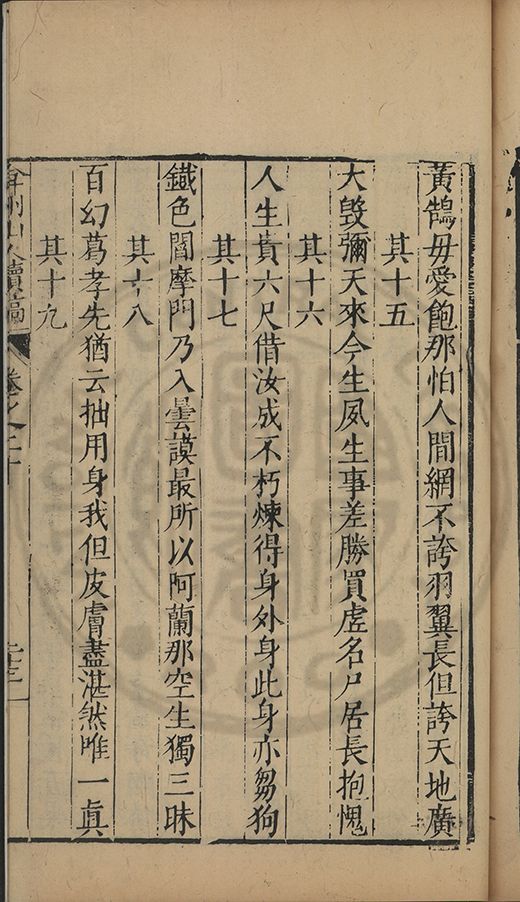 黃鵠毋愛飽那怕人間網不誇羽翼長但誇天地廣
其十五
大毀彌天來今生夙生事差勝買虛名尸居長抱愧
其十六
人生責六尺借汝成不朽煉得身外身此身亦芻狗
其十七
鐵色閻摩門乃入曇謨最所以阿蘭那空生獨三昧
其十八
百幻葛孝先猶云拙用身我但皮膚盡湛然唯一眞
其十九
弇州山人續稿 卷之二十